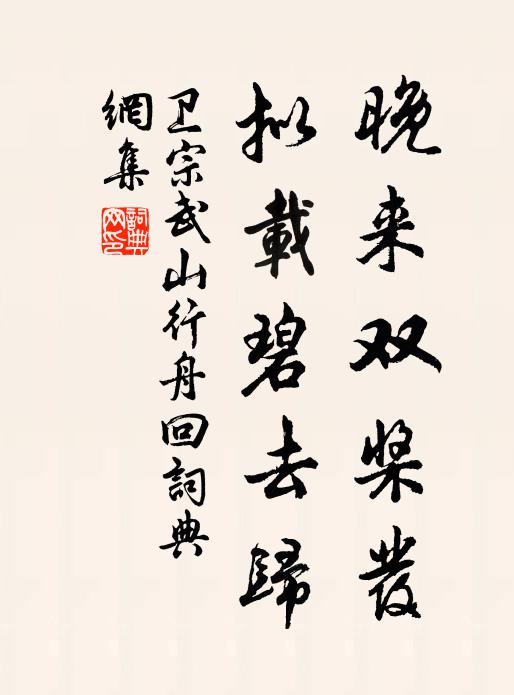 晚来双桨发
拟載碧去歸
卫宗武山行舟回詞典
網集
詞典網印